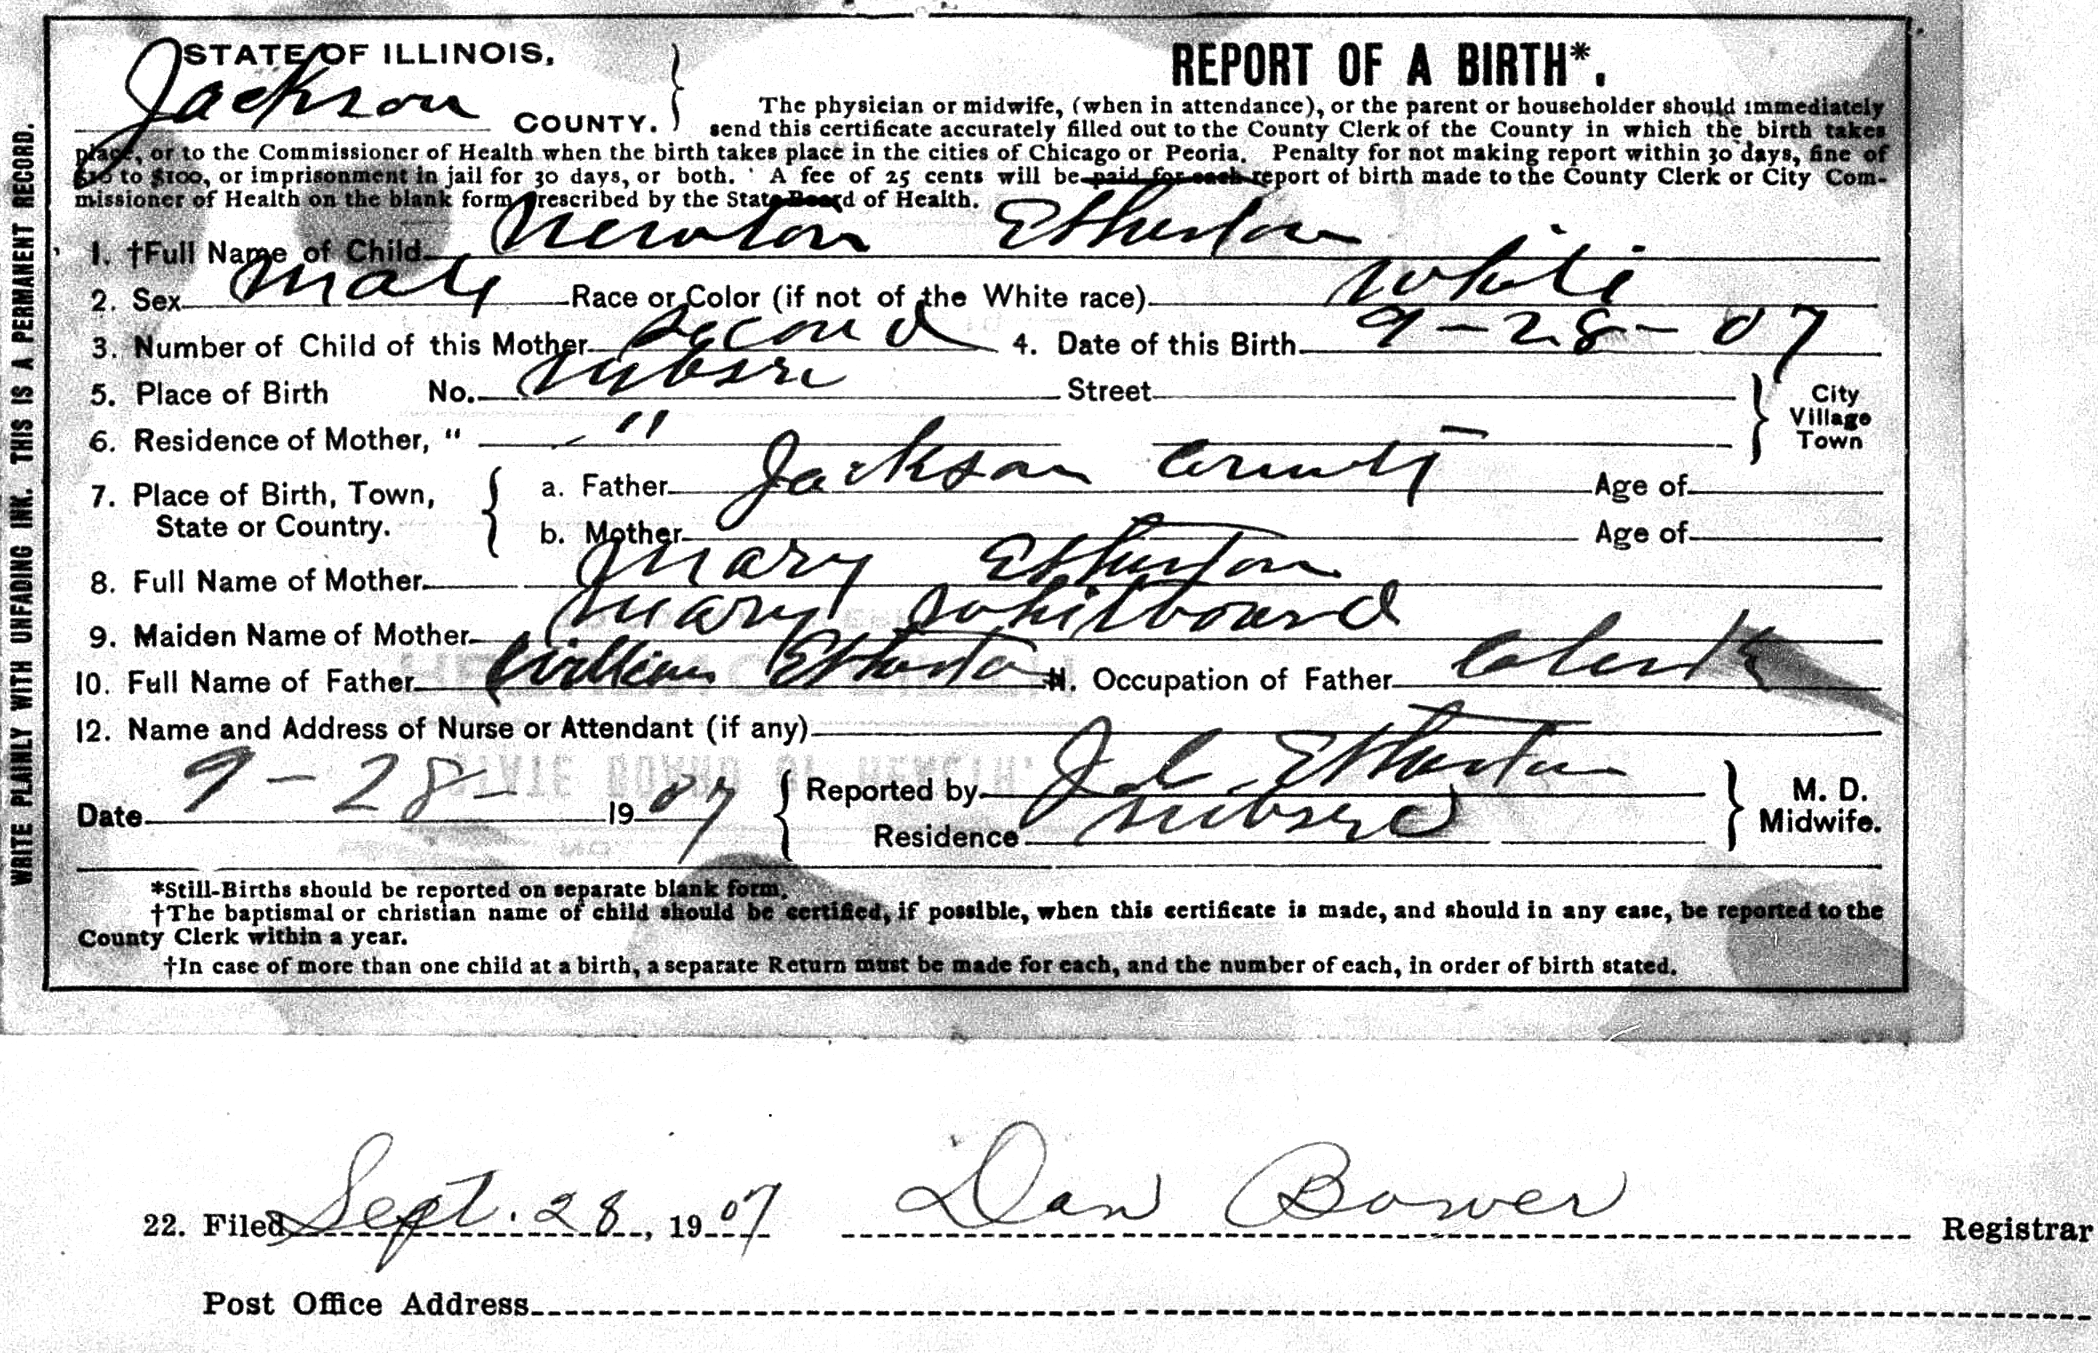 WRITE PLAINLY WITH UNFADING INK. THIS IS A PERMANENT RECORD.
STATE OF ILLINOIS,
Jackson COUNTY.
REPORT OF A BIRTH*.
The physician or midwife, (when in attendance), or the parent or householder should immediately
send this certificate accurately filled out to the County Clerk of the County in which the birth takes
place, or to the Commissioner of Health when the birth takes place in the cities of Chicago or Peoria. Penalty for not making report within 30 days, fine of
$10 to $100, or imprisonment in jail for 30 days, or both. A fee of 25 cents will be paid for each report of birth made to the County Clerk or City Com-
missioner of Health on the blank form prescribed by the State Board of Health.
1. †Full Name of Child Newton Etherton
2. Sex Male Race or Color (if not of the White race) White
3. Number of Child of this Mother Second 4. Date of this Birth 9-28-07
5. Place of Birth No. Street
6. Residence of Mother, " - "
City
Village
Town
7. Place of Birth, Town,
State or Country.
a. Father Jackson County Age of
b. Mother Age of
8. Full Name of Mother Mary Etherton
9. Maiden Name of Mother Mary
10. Full Name of Father William Etherton 11. Occupation of Father Clerk
12. Name and Address of Nurse or Attendant (if any)
Date 9-28- 1907
Reported by J. C. Etherton
Residence
M. D.
Midwife.
*Still-Births should be reported on separate blank form.
†The baptismal or christian name of child should be certified, if possible, when this certificate is made, and should in any case, be reported to the
County Clerk within a year.
†In case of more than one child at a birth, a separate Return must be made for each, and the number of each, in order of birth stated.
22. Filed Sept. 28, 1907 Dan Bower Registrar
Post Office Address